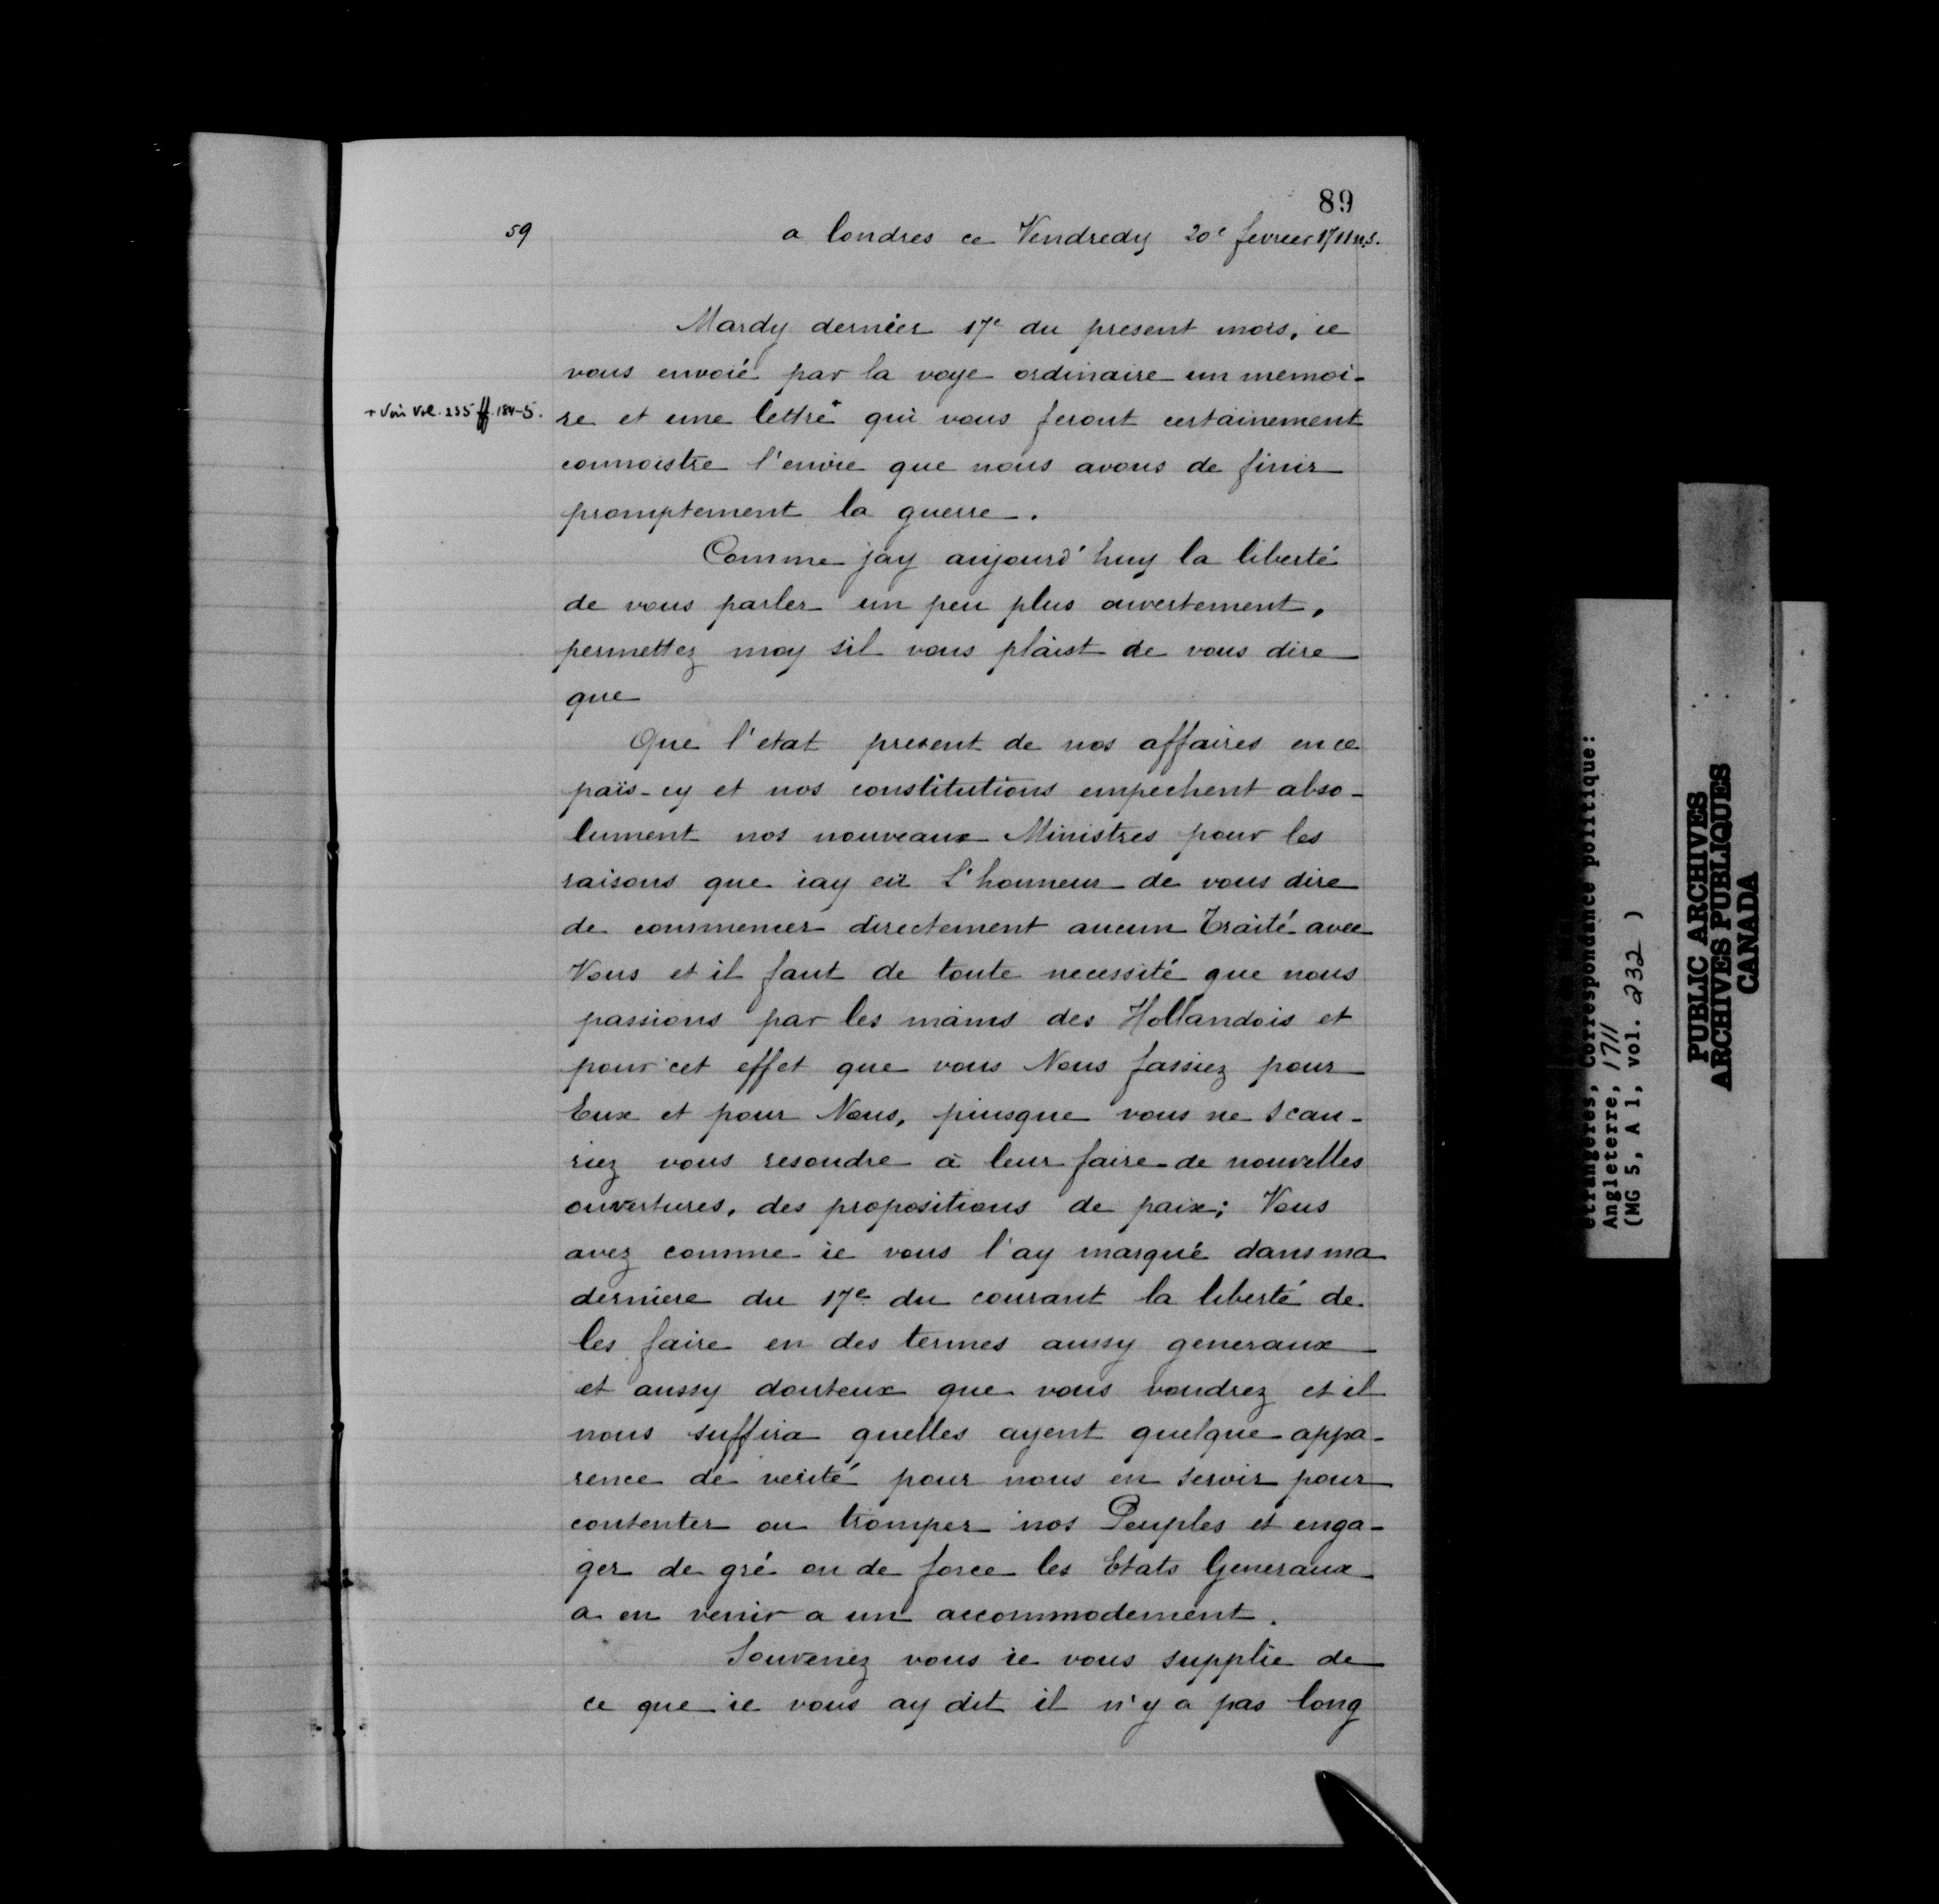 89
59
a londres ce Vendredy 20e fevrier 1711 n.s.
Mardy dernier 17e du present mois, ie
vous envoié par la voye ordinaire un memoi-
+ Voir Vol. 235 ff. 184-5.
re et une lettre+ qui vous feront certainement
connoistre l'envie que nous avons de finir
promptement la guerre.
Comme jay aujourd'huy la liberté
de vous parler un peu plus ouvertement,
permettez moy sil vous plaist de vous dire
que
Que l'etat present de nos affaires en ce
païs-cy et nos constitutions empechent abso-
lument nos nouveaux Ministres pour les
raisons que iay eü L'honneur de vous dire
de commencer directement aucun Traité avec
Vous et il faut de toute necessité que nous
passions par les mains des Hollandois et
pour cet effet que vous Nous fassiez pour
Eux et pour Nous, puisque vous ne scau-
riez vous resoudre à leur faire de nouvelles
ouvertures, des propositions de paix; Vous
avez comme ie vous l'ay marqué dans ma
derniere du 17e du courant la liberté de
les faire en des termes aussy generaux
et aussy douteux que vous voudrez et il
nous suffira quelles ayent quelque appa-
rence de verité pour nous en servir pour
contenter ou tromper nos Peuples et enga-
ger de gré ou de force les Etats Generaux
a en venir a un accommodement.
Souvenez vous ie vous supplie de
ce que ie vous ay dit il n'y a pas long
étrangères, Correspondance politique:
Angleterre, 1711
(MG 5, A 1, vol. 232 )
PUBLIC ARCHIVES
ARCHIVES PUBLIQUES
CANADA